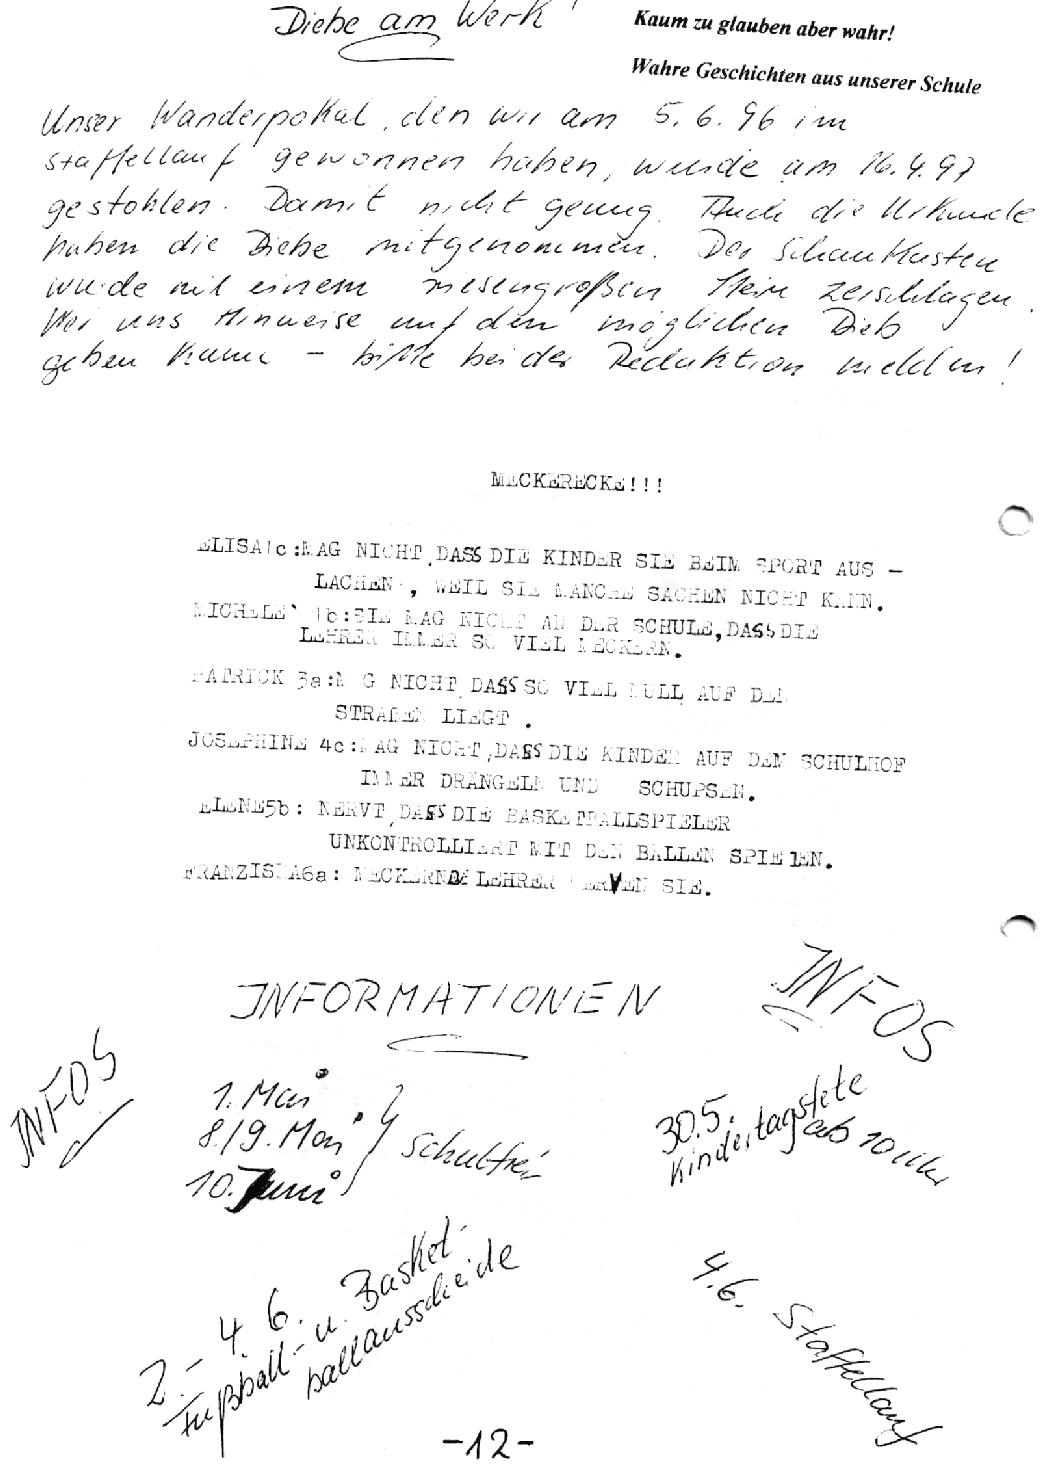 Diebe am Werk!
Kaum zu glauben aber wahr!
Wahre Geschichten aus unserer Schule
Unser Wanderpokal, den wir am 5.6.96 im
Staffellauf gewonnen haben, wurde am 16.4.97
gestohlen. Damit nicht genug. Auch die Urkunde
haben die Diebe mitgenommen. Der Schaukasten
wurde mit einem riesengroßen Stein zerschlagen.
Wer uns Hinweise auf den möglichen Dieb
geben kann – bitte bei der Redaktion melden!
MECKERECKE!!!
ELISA1c:MAG NICHT,DASS DIE KINDER SIE BEIM SPORT AUS –
LACHEN , WEIL SIE MANCHE SACHEN NICHT KANN.
MICHELE` 1b:SIE MAG NICHT AN DER SCHULE,DASS DIE
LEHRER IMMER SO VIEL MECKERN.
PATRICK 3a:MAG NICHT DASS SO VIEL MÜLL AUF DEN
STRAßEN LIEGT .
JOSEPHINE 4c:MAG NICHT,DASS DIE KINDER AUF DEM SCHULHOF
IMMER DRÄNGELN UND SCHUPSEN.
ELENE5b: NERVT,DASS DIE BASKETBALLSPIELER
UNKONTROLLIERT MIT DEN BÄLLEN SPIELEN.
FRANZISKA6a: MECKERNDE LEHRER NERVEN SIE.
INFORMATIONEN
INFOS
INFOS
1. Mai
8./9. Mai
10. Juni
schulfrei
30.5.
Kindertagsfete
ab 10 Uhr
2.–4.6.
Fußball- u. Basket-
ballausscheide
4.6. Staffellauf
-12-